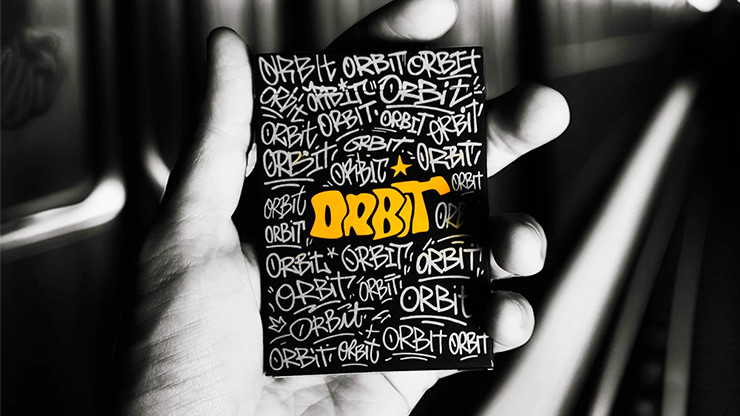 ORBIT ORBIT ORBIT
ORBIT ORBIT ORBIT
ORBIT ORBIT ORBIT ORBIT
ORBIT ORBIT ORBIT
ORBIT
ORBIT ORBIT ORBIT
ORBIT
ORBIT ORBIT ORBIT
ORBIT ORBIT ORBIT
ORBIT ORBIT ORBIT
ORBIT ORBIT
ORBIT ORBIT ORBIT ORBIT